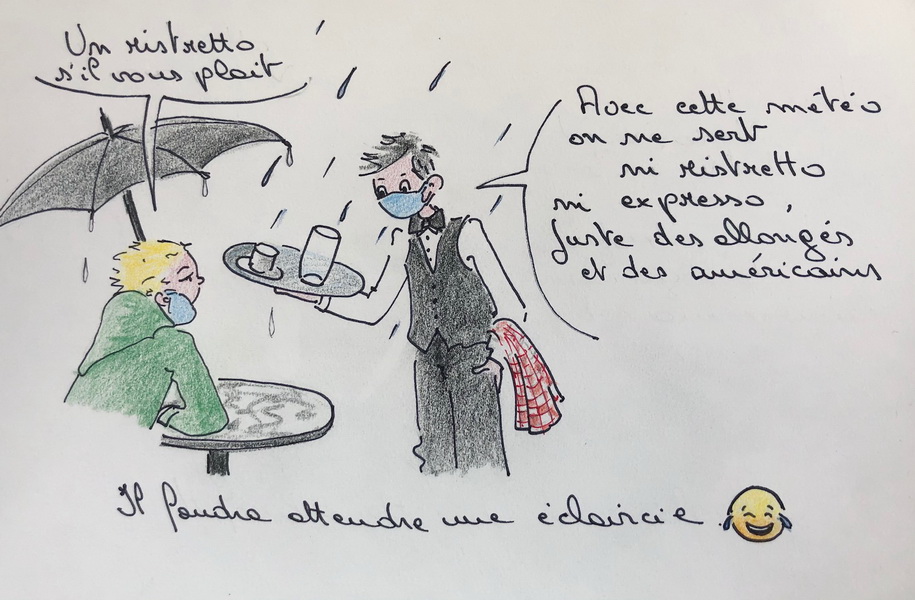 Un ristretto
s'il vous plait
Avec cette météo
on ne sert
ni ristretto
ni expresso,
Juste des allongés
et des américains
Il faudra attendre une éclaircie